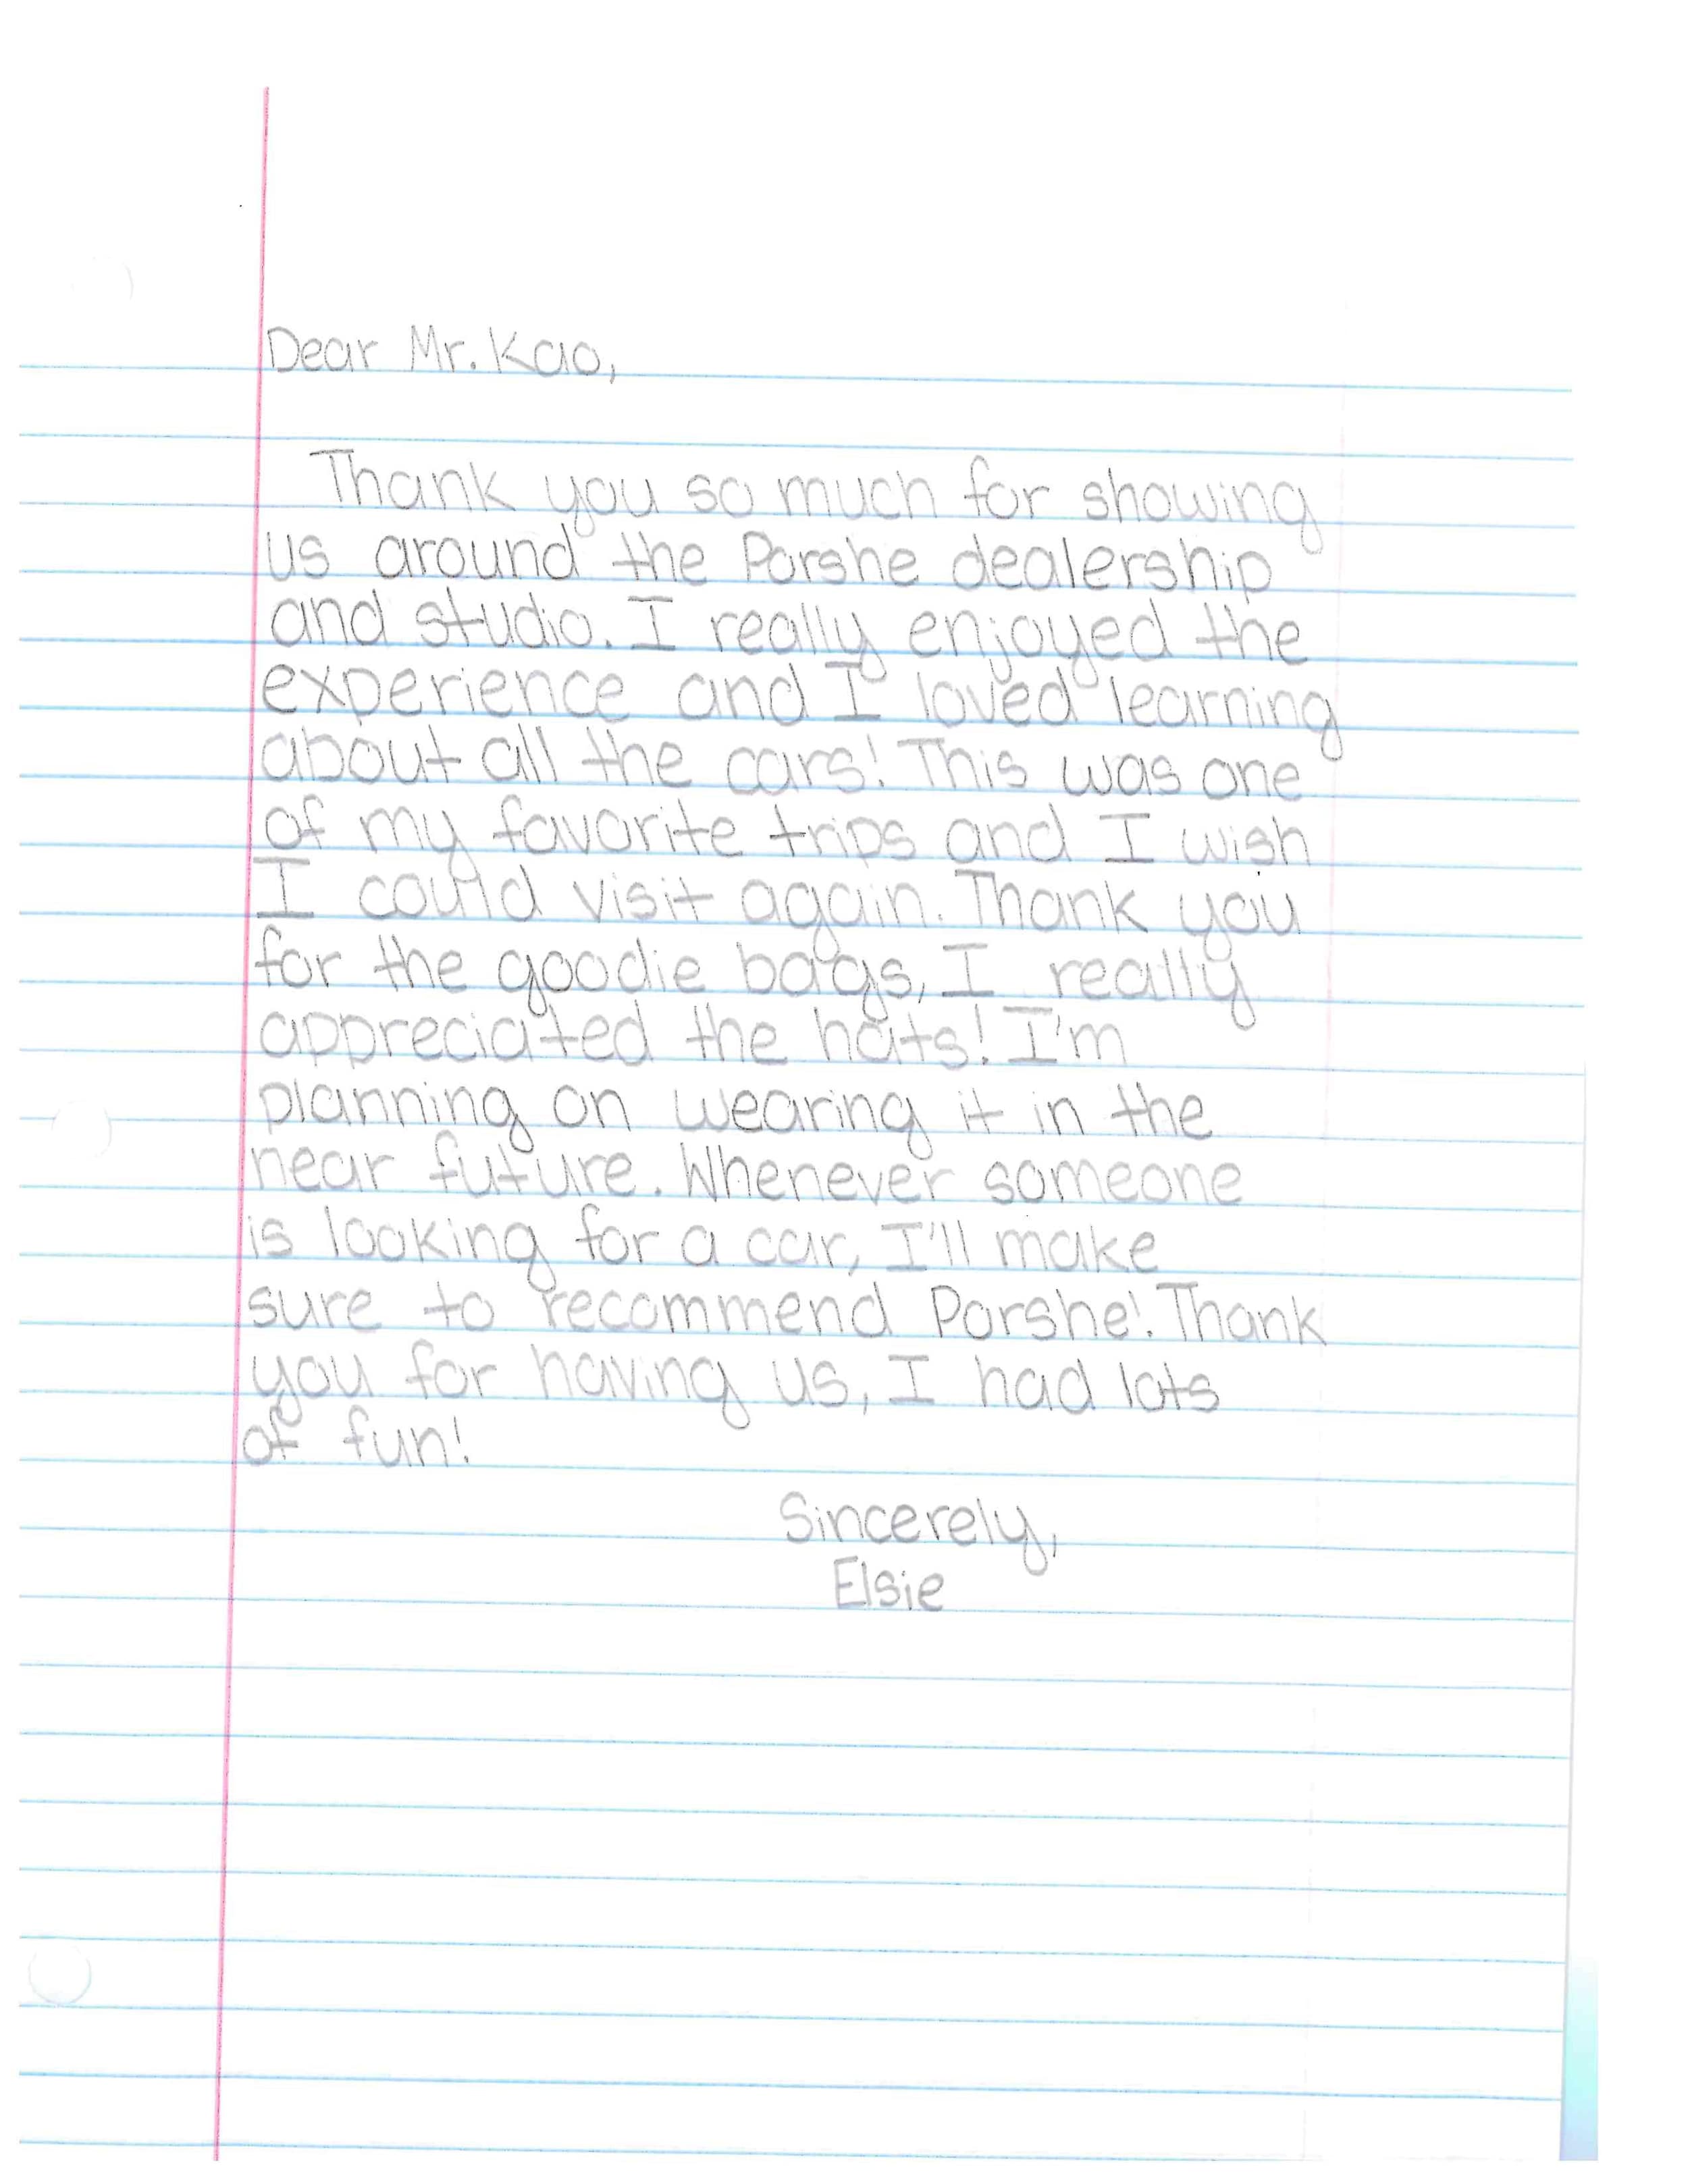 Dear Mr. Kao,
Thank you so much for showing
us around the Porshe dealership
and studio. I really enjoyed the
experience and I loved learning
about all the cars! This was one
of my favorite trips and I wish
I could visit again. Thank you
for the goodie bags, I really
appreciated the hats! I'm
planning on wearing it in the
near future. Whenever someone
is looking for a car, I'll make
sure to recommend Porshe! Thank
you for having us, I had lots
of fun!
Sincerely,
Elsie